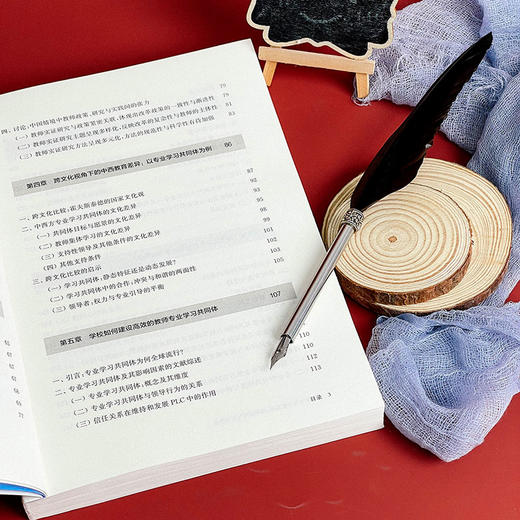 四、讨论:中国情境中教师政策、研究与实践间的张力 79
(一)教师实证研究与政策紧密关联,体现出改革政策的一致性与渐进性 79
(二)教师实证研究主题呈现多样化,反映改革的复杂性与教师的主体性 81
(三)教师实证研究方法呈现多元化,方法的规范性与科学性有待加强 83
第四章 跨文化视角下的中西教育差异:以专业学习共同体为例 86
一、跨文化比较:霍夫斯泰德的国家文化观 87
二、中西方专业学习共同体的文化差异 92
(一)共同体目标与愿景的文化差异 93
(二)教师集体学习的文化差异 95
(三)支持性领导及其他条件的文化差异
(四)其他支持条件
三、跨文化比较的启示
(一)学习共同体:静态特征还是动态发展?
(二)学习共同体中的合作:冲突与和谐的两面性 103
(三)领导者:权力与专业引导的平衡 105
107
第五章 学校如何建设高效的教师专业学习共同体
一、引言:专业学习共同体为何全球流行? 110
二、专业学习共同体及其影响因素的文献综述 110
(一)专业学习共同体:概念及其维度 112
(二)专业学习共同体与领导行为的关系 113
(三)信任关系在维持和发展 PLC 中的作用
目录 3